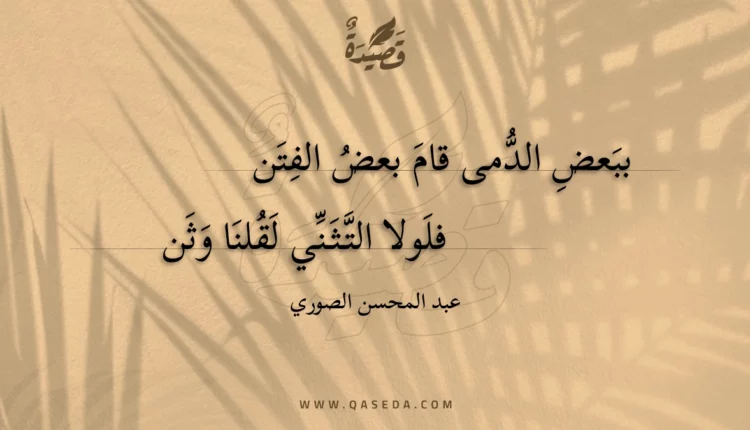 قَصِيْدَةٌ
ببَعضِ الدُّمى قامَ بعضُ الفِتَن
فلَولا التَّثَنِّي لَقُلنَا وَثَن
عبد المحسن الصوري
WWW.QASEDA.COM